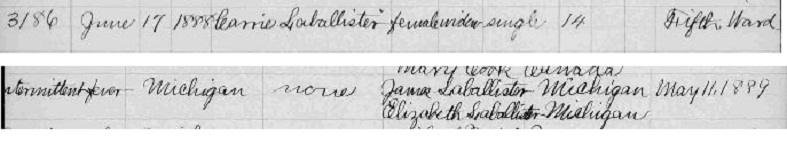 3186 June 17 1888 Carrie Laballister female single 14 Fifth Ward
Mary Cook Canada
intermittent fever Michigan none James Laballister Michigan May 11, 1889
Elizabeth Laballister Michigan